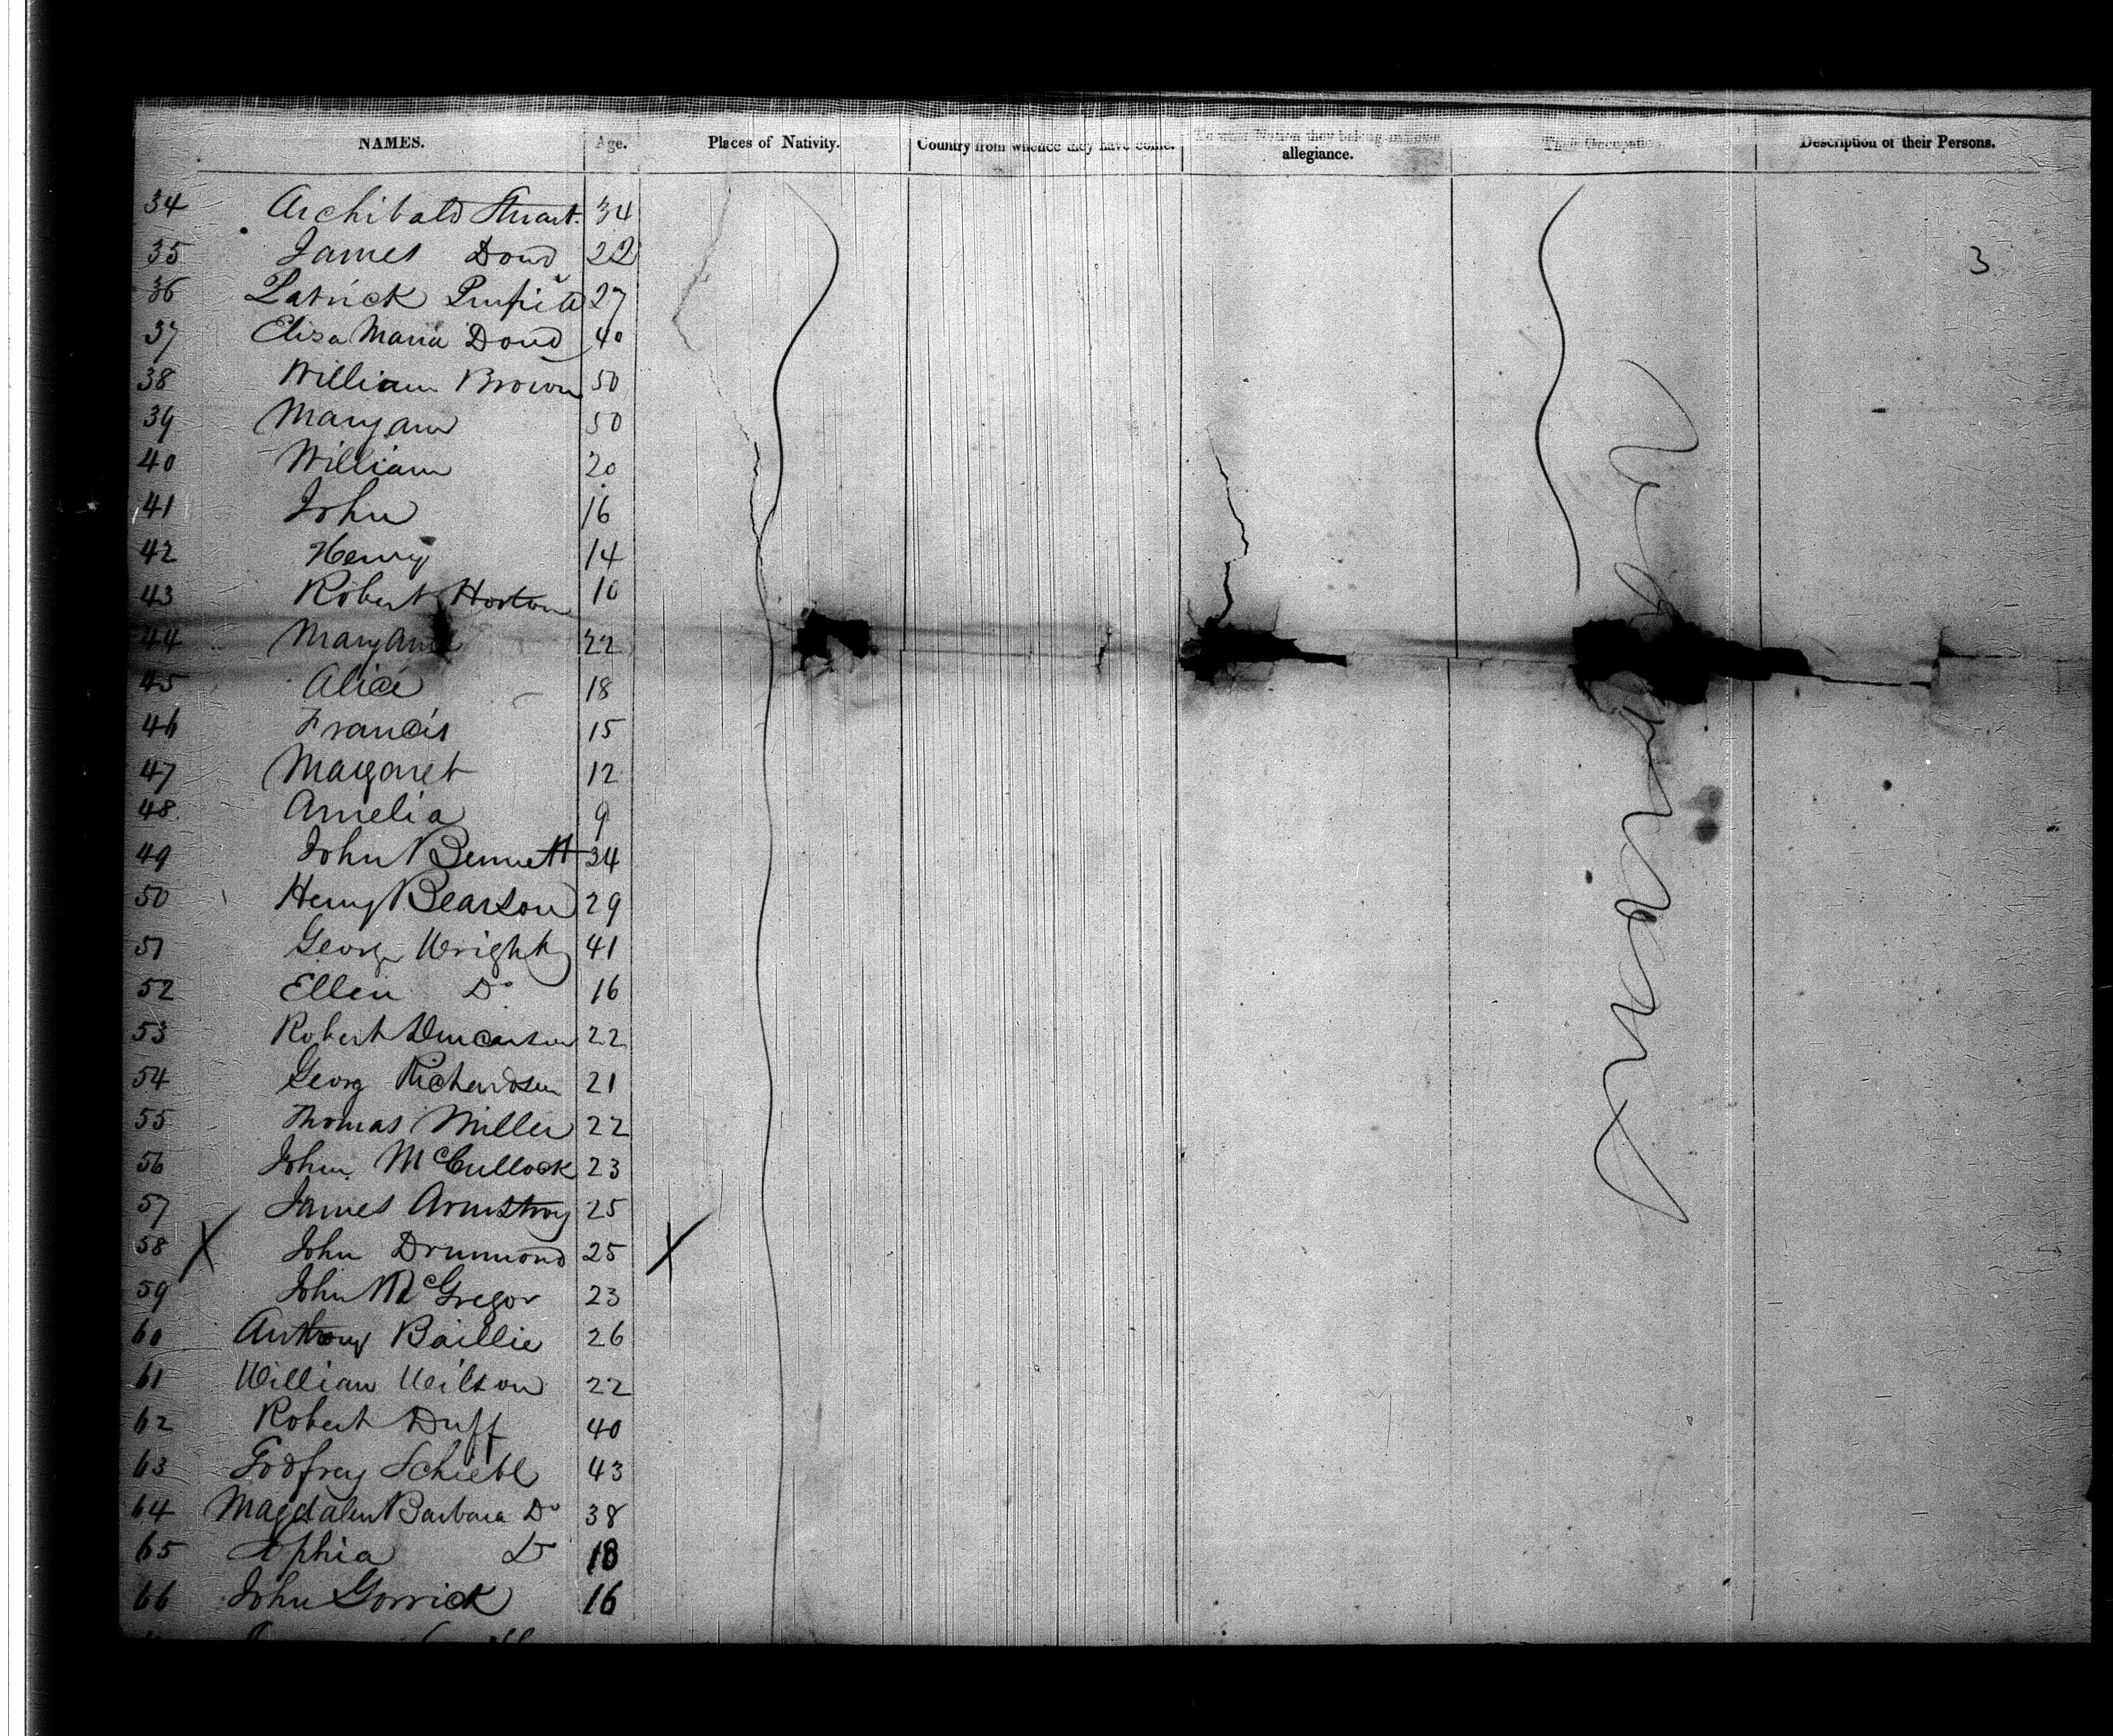 NAMES. Age. Places of Nativity. Country from whence they have come. To what Nation they belong allegiance. Their Occupation. Description of their Persons.
34 Archibald Stuart. 34
35 James Doud 22
3
36 Patrick 27
37 Eliza Maria Doud 40
38 William Brown 50
39 Maryann 50
40 William 20
41 John 16
42 Henry 14
43 Robert Horton 10
44 Maryann 22
45 Alice 18
46 Francis 15
47 Margaret 12
48 Amelia 9
49 John Bennett 34
50 Henry Bearson 29
51 George Wright 41
52 Ellen Do 16
53 Robert Duncanson 22
54 Georg Richardson 21
55 Thomas Miller 22
56 John McCullock 23
57 James Armstrong 25
58 X John Drummond 25 X
59 John McGregor 23
60 Anthony Baillie 26
61 William Wilson 22
62 Robert Duff 40
63 Godfrey Schiebl 43
64 Magdalen Barbara Do 38
65 Sophia Do 18
66 John Gorrick 16